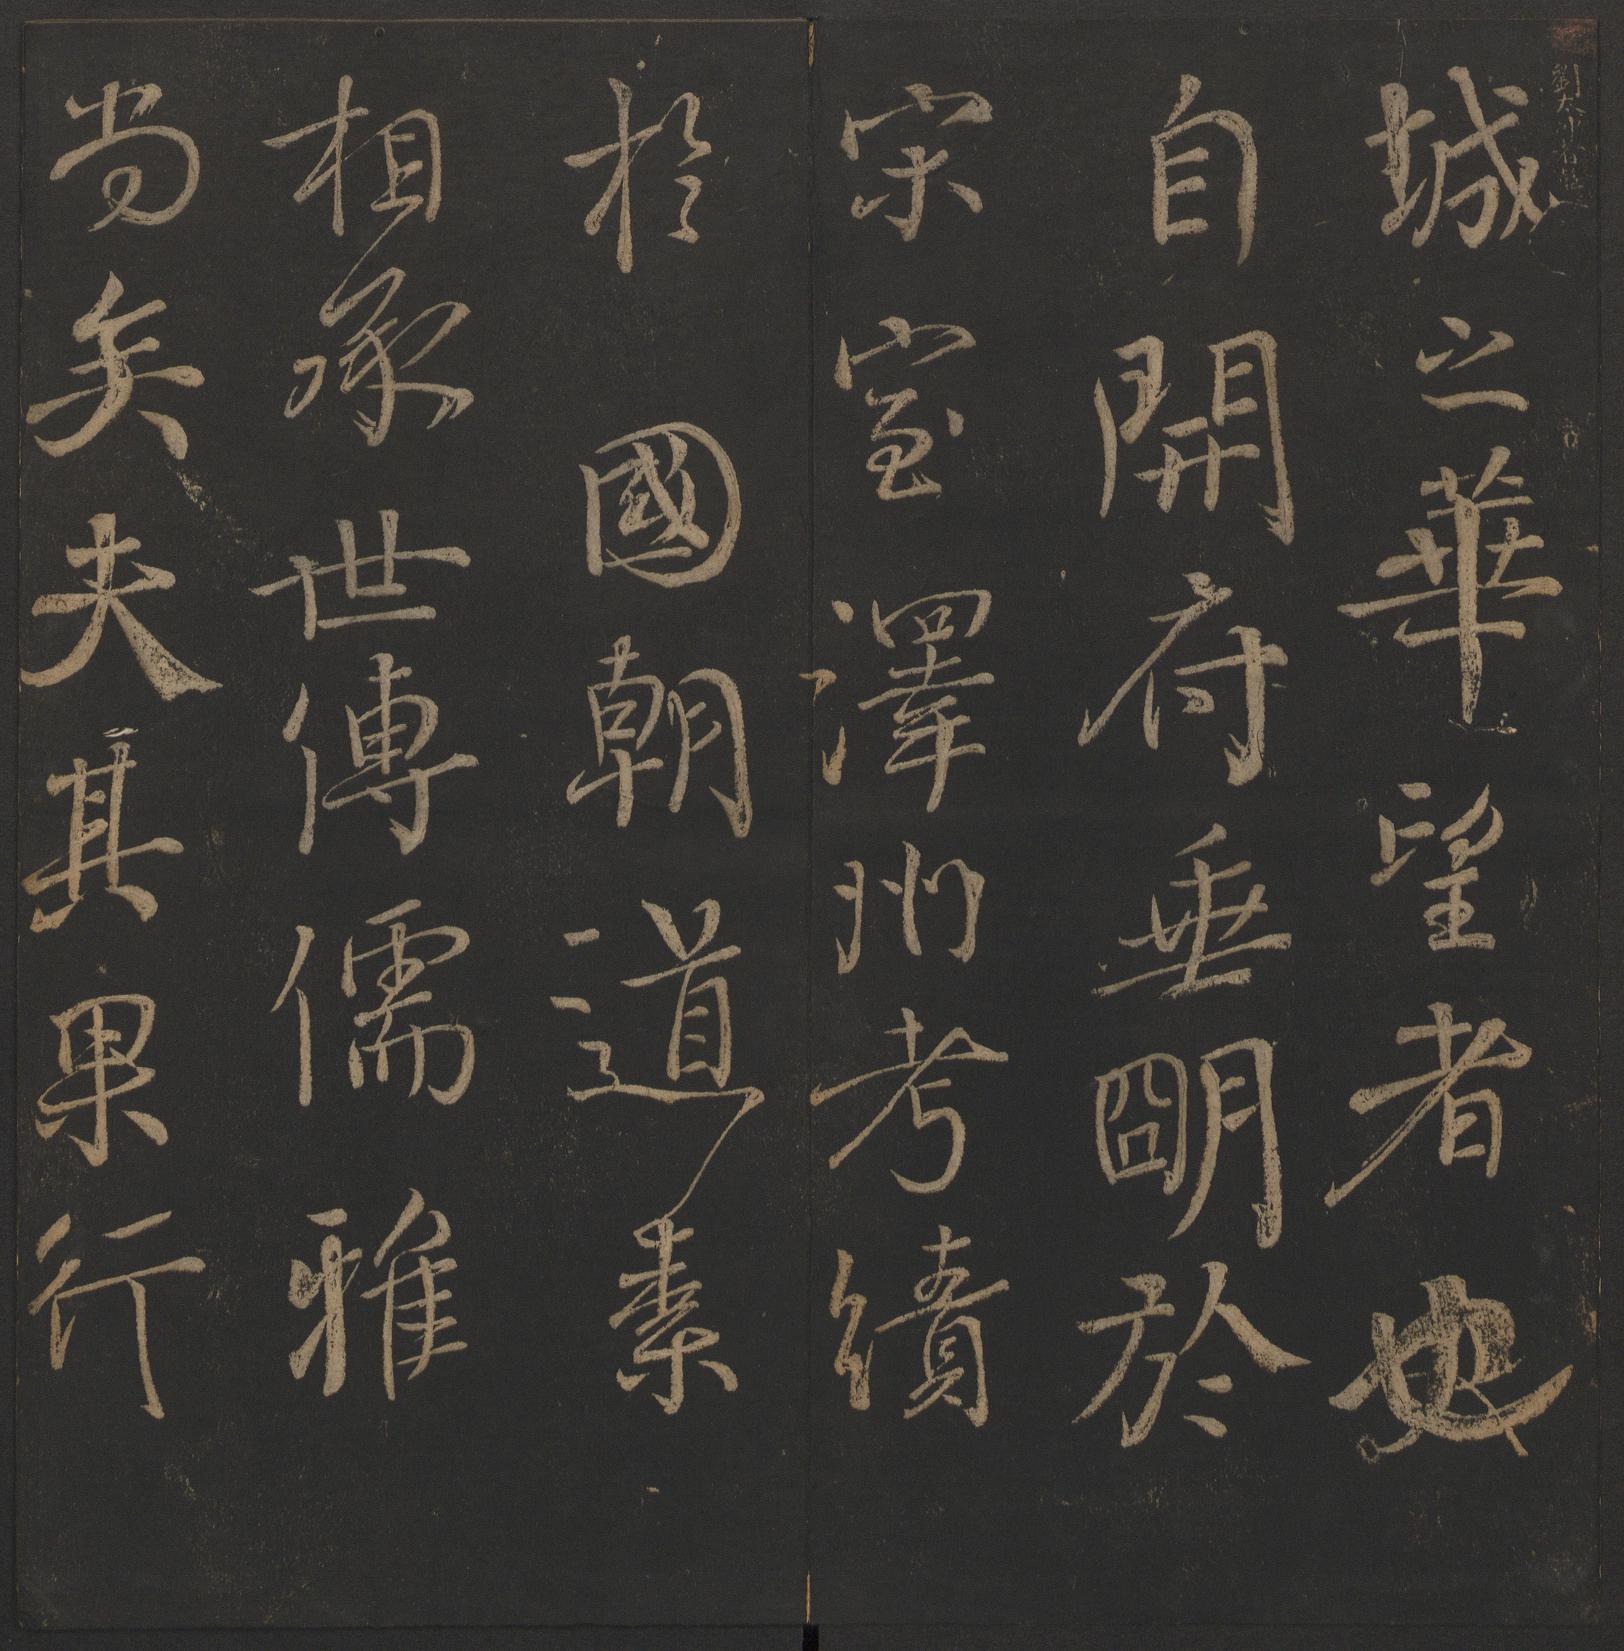 城之華望者也
自開府垂明於
宋室澤州考績
於國朝道素
相承世傳儒雅
尚矣夫其果行